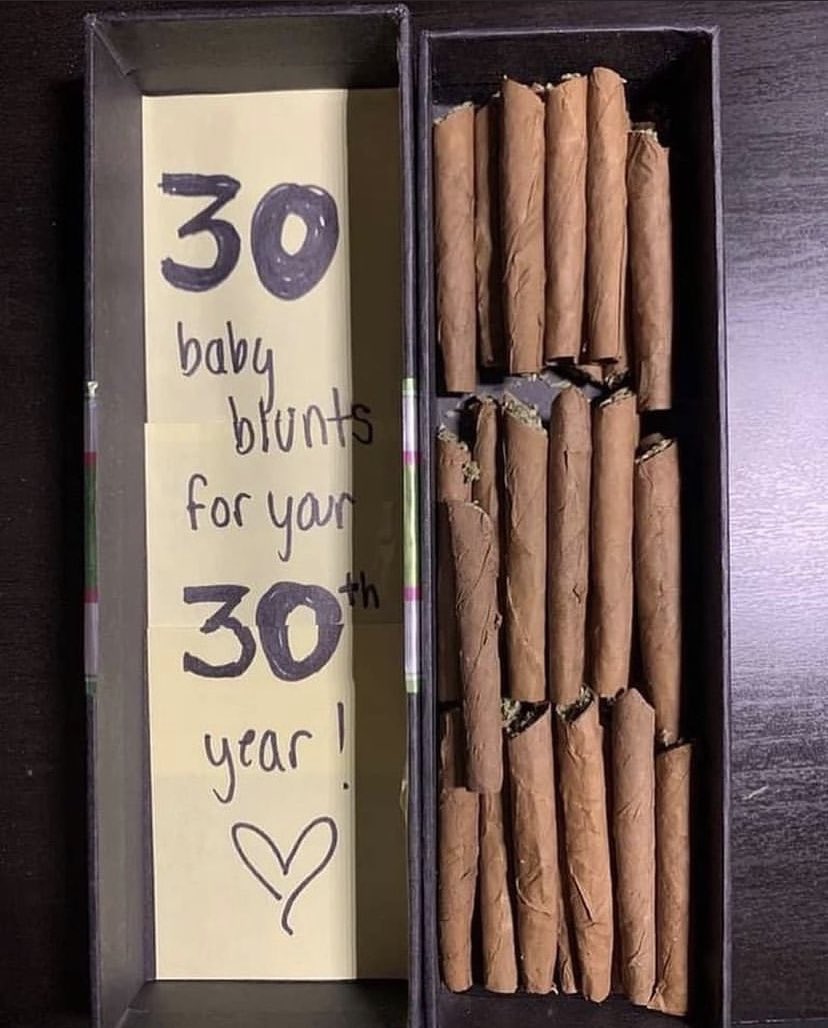 30
baby
blunts
for your
30th
year!